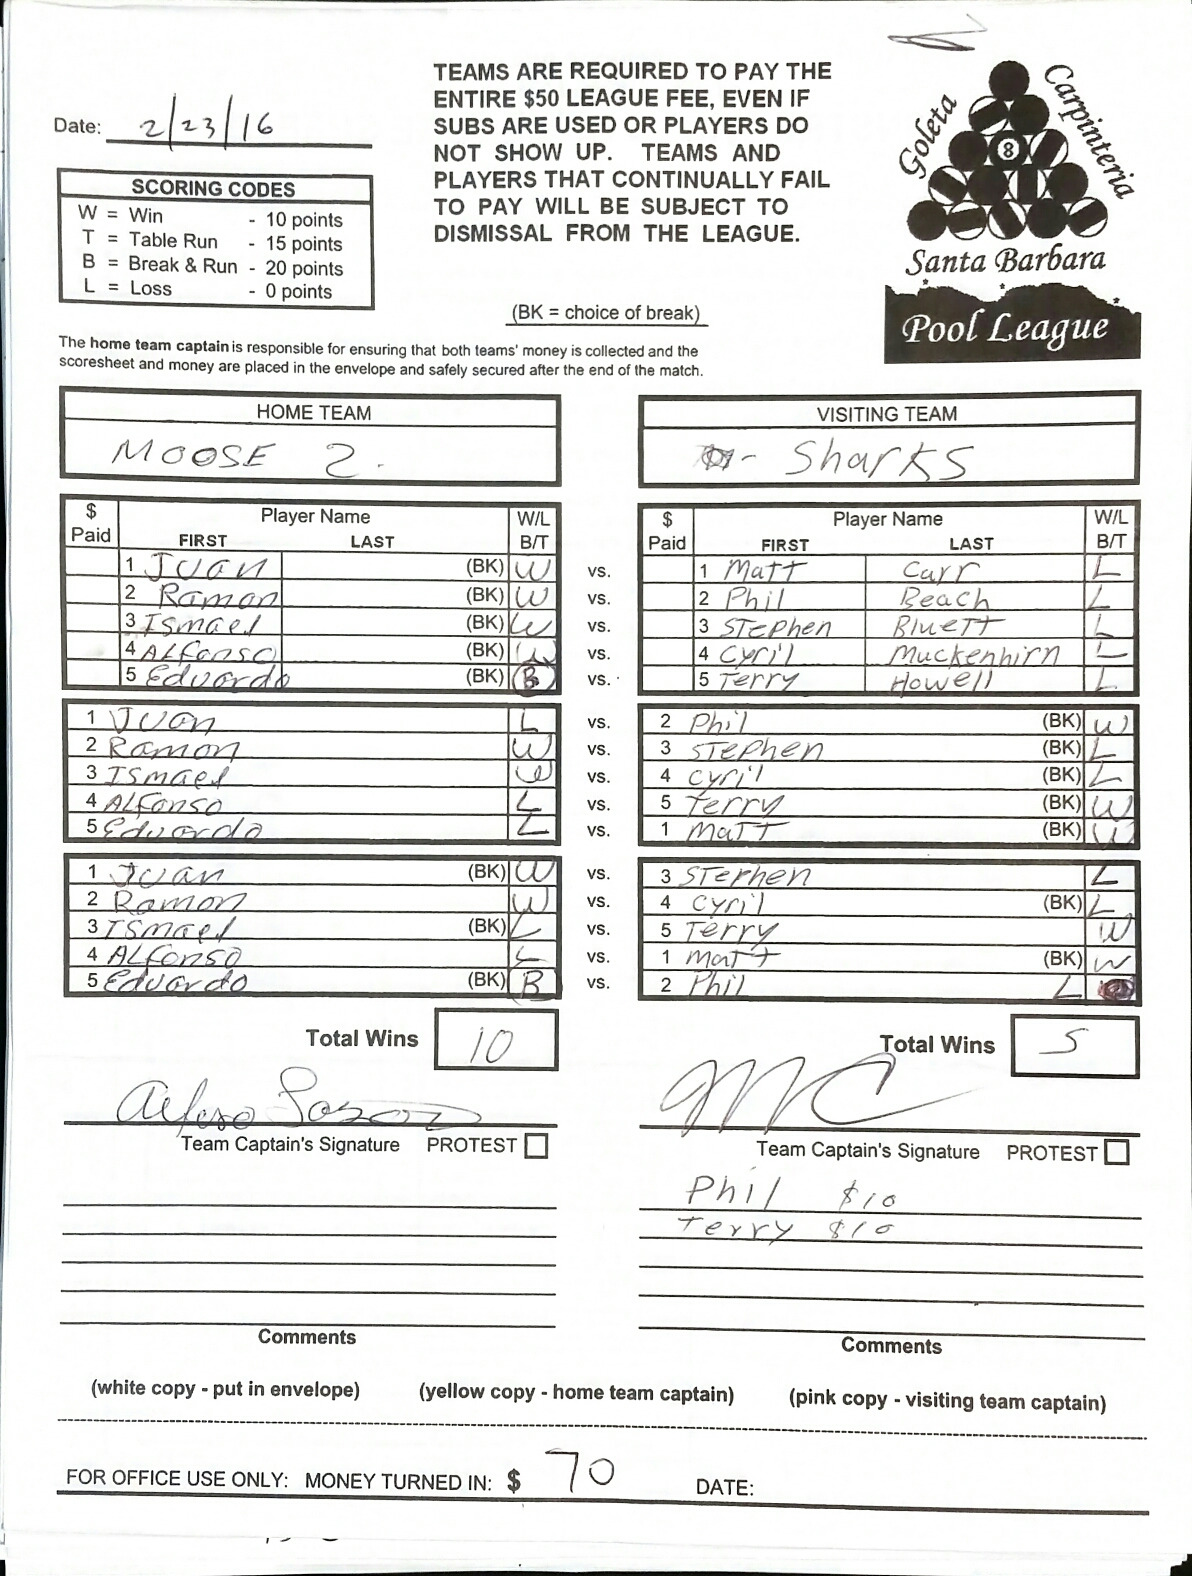 TEAMS ARE REQUIRED TO PAY THE
ENTIRE $50 LEAGUE FEE, EVEN IF
SUBS ARE USED OR PLAYERS DO
NOT SHOW UP. TEAMS AND
PLAYERS THAT CONTINUALLY FAIL
TO PAY WILL BE SUBJECT TO
DISMISSAL FROM THE LEAGUE.
Goleta
Carpinteria
8
Santa Barbara
Pool League
Date: 2/23/16
SCORING CODES
W = Win - 10 points
T = Table Run - 15 points
B = Break & Run - 20 points
L = Loss - 0 points
(BK = choice of break)
The home team captain is responsible for ensuring that both teams' money is collected and the
scoresheet and money are placed in the envelope and safely secured after the end of the match.
HOME TEAM VISITING TEAM
MOOSE 2. - Sharks
$ Paid Player Name FIRST LAST W/L B/T $ Paid Player Name FIRST LAST W/L B/T
1 Juan (BK) W vs. 1 Matt Carr L
2 Ramon (BK) W vs. 2 Phil Beach L
3 Ismael (BK) W vs. 3 Stephen Bluett L
4 ALFonso (BK) W vs. 4 Cyril Muckenhirn L
5 Eduardo (BK) B vs. 5 Terry Howell L
1 Juan L vs. 2 Phil (BK) W
2 Ramon W vs. 3 Stephen (BK) L
3 Ismael W vs. 4 Cyril (BK) L
4 ALFonso L vs. 5 Terry (BK) W
5 Eduardo L vs. 1 Matt (BK) W
1 Juan (BK) W vs. 3 Stephen L
2 Ramon W vs. 4 Cyril (BK) L
3 Ismael (BK) L vs. 5 Terry W
4 ALFonso L vs. 1 Matt (BK) W
5 Eduardo (BK) B vs. 2 Phil L
Total Wins 10 Total Wins 5
Team Captain's Signature PROTEST Team Captain's Signature PROTEST
Phil $10
Terry $10
Comments Comments
(white copy - put in envelope) (yellow copy - home team captain) (pink copy - visiting team captain)
FOR OFFICE USE ONLY: MONEY TURNED IN: $ 70 DATE: